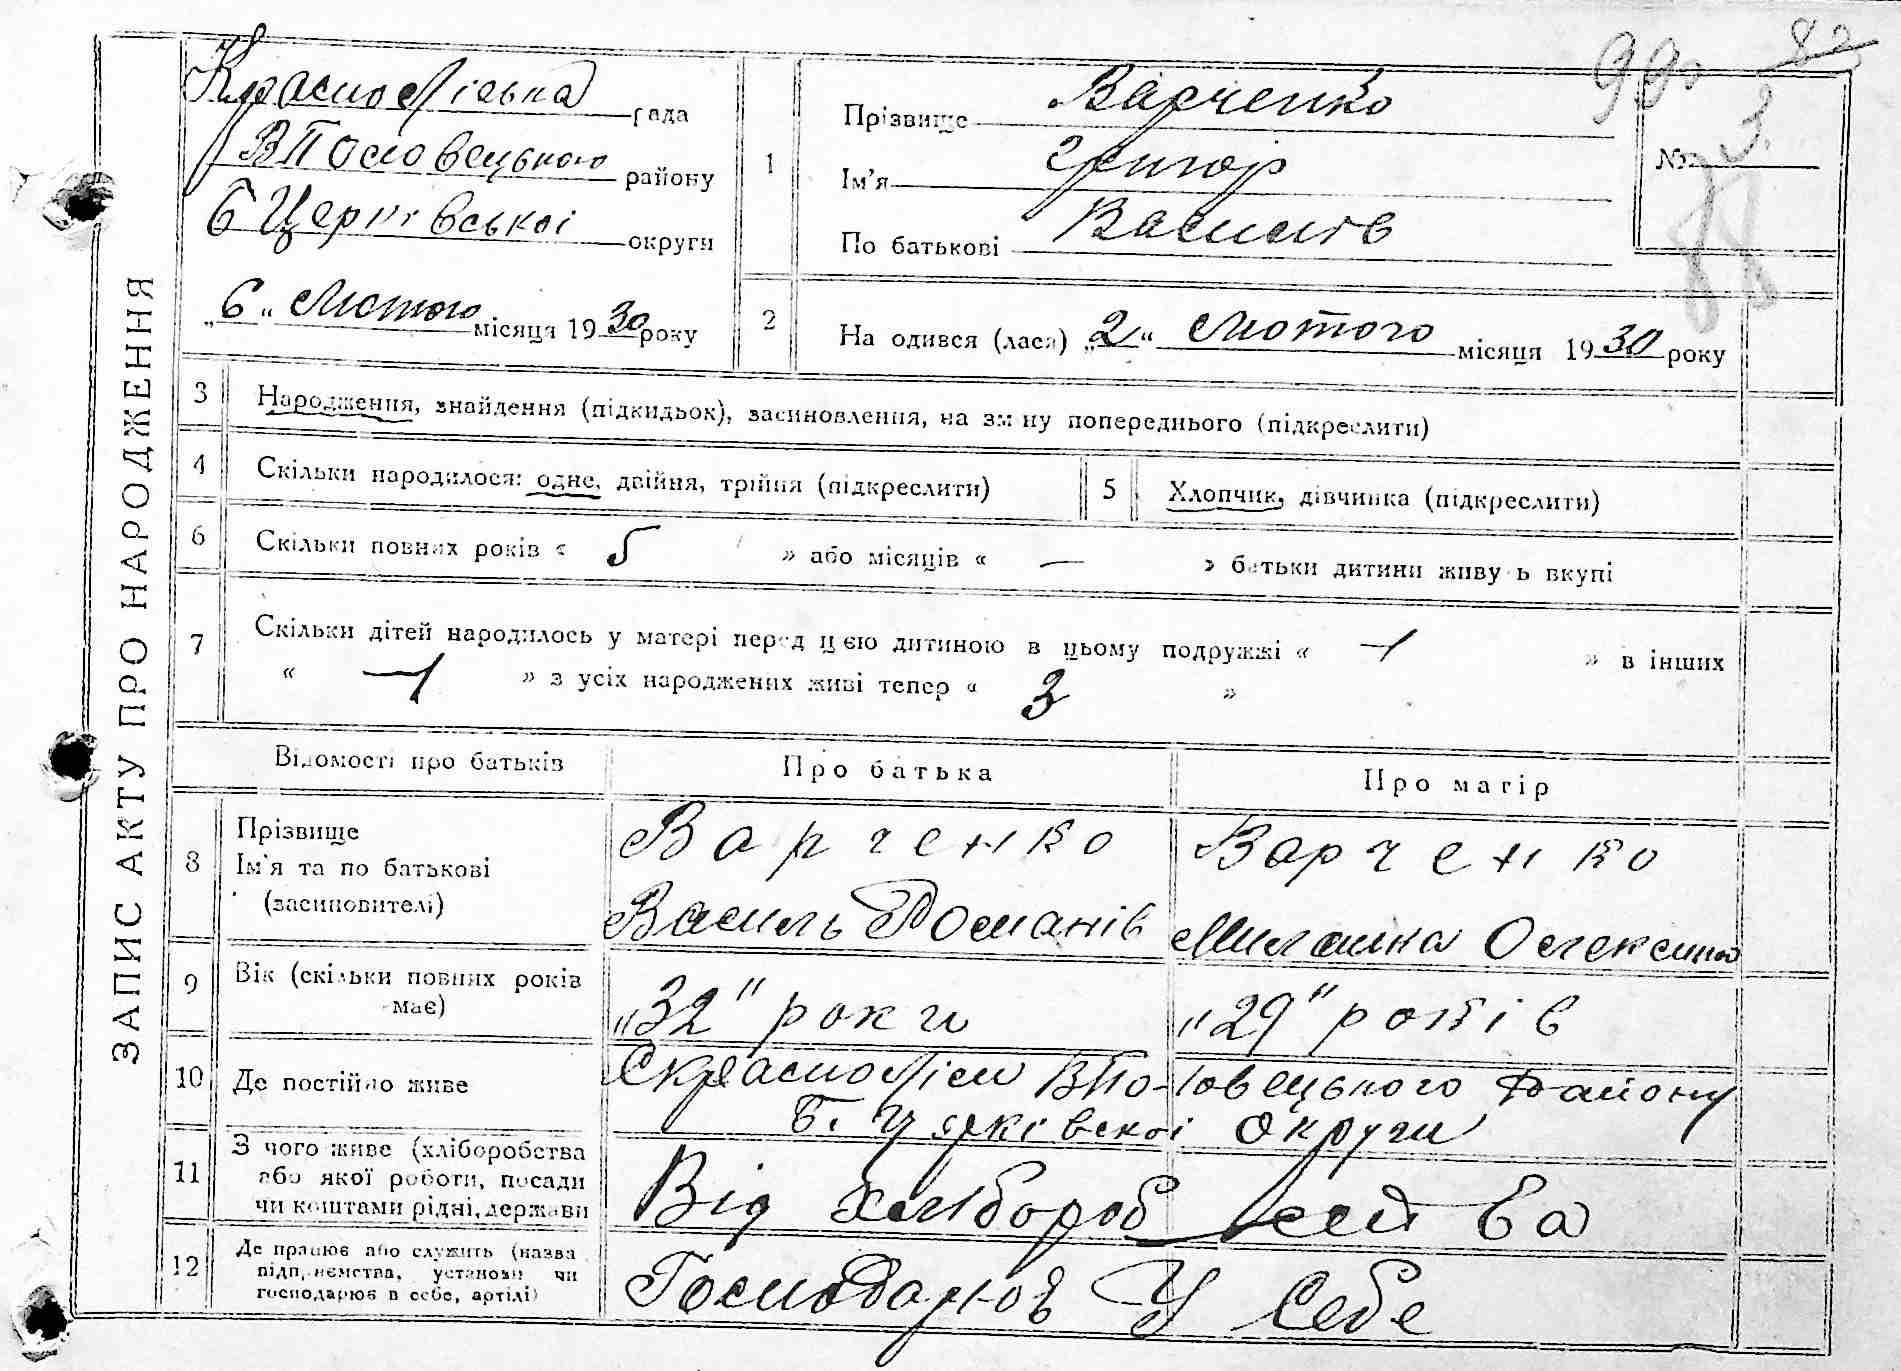 ЗАПИС АКТУ ПРО НАРОДЖЕННЯ
990 82
Краснолiська рада
ВПоловецького району
БЦеркiвськоi округи
„6“ Лютого місяця 1930 року
1
Прізвище Варченко
Ім'я Григор
По батькові Василів
№ 3.
88
2
На одився (лася) „2“ Лютого місяця 1930 року
3 Народження, знайдення (підкидьок), засиновлення, на зм ну попереднього (підкреслити)
4 Скільки народилося: одне, двійня, трійня (підкреслити)
5 Хлопчик, дівчинка (підкреслити)
6 Скільки повних років « 5 » або місяців « — » батьки дитини живу ь вкупі
7 Скільки дітей народилось у матері перед цією дитиною в цьому подружжі « » в інших
« » з усіх народжених живі тепер « 3 »
Відомості про батьків
Про батька
Про матір
8 Прізвище
Ім'я та по батькові
(засиновителі)
Варченко
Василь Романів
Варченко
Милашка Олексина
9 Вік (скільки повних років має)
„32" роки
„29" років
10 Де постійно живе
СКрасноЛіси ВПоловецького Району
Б. Церківскоі Округи
11 З чого живе (хліборобства
або якої роботи, посади
чи коштами рідні, держави
Від хліборобства
12 Де працює або служить (назва
підп,иємства, установи чи
господарює в себе, артілі)
Господарюв У Себе